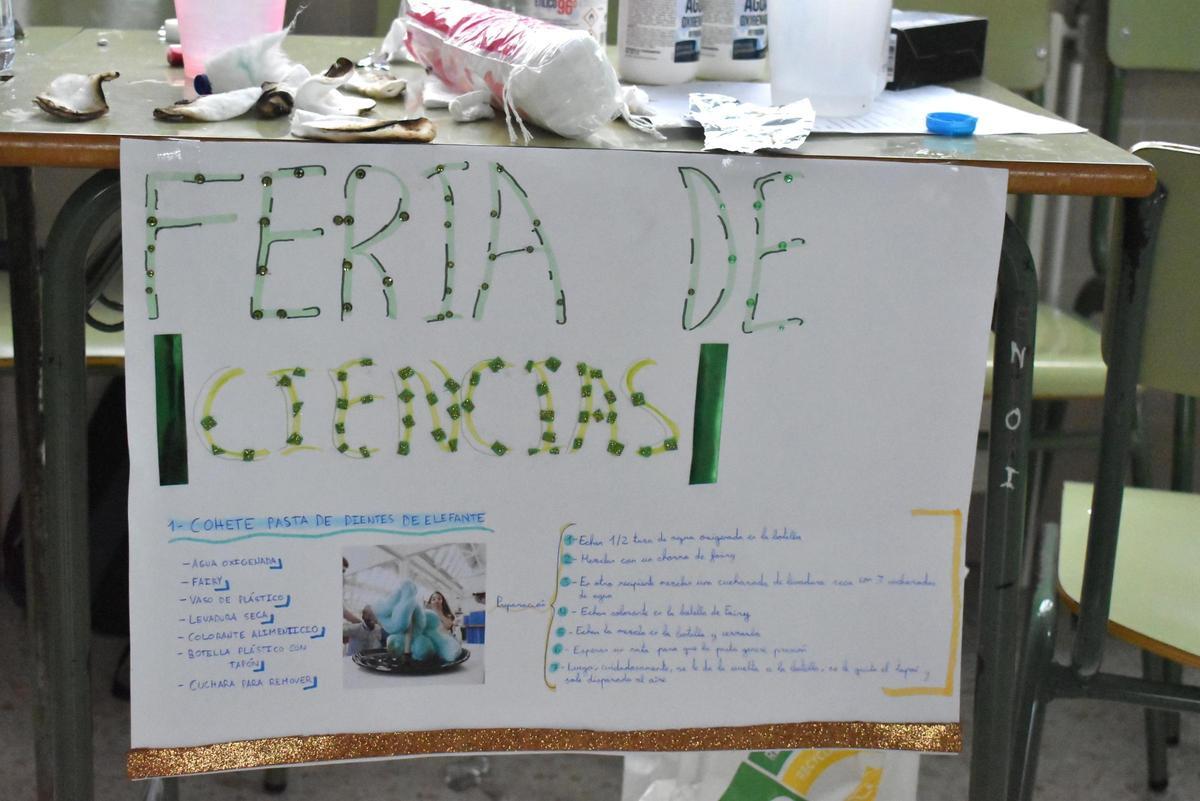 96°
AGUA
OXIGENADA
AGUA
OXIGENADA
FERIA DE
CIENCIAS
1- COHETE PASTA DE DIENTES DE ELEFANTE
- AGUA OXIGENADA
- FAIRY
- VASO DE PLÁSTICO
- LEVADURA SECA
- COLORANTE ALIMENTICIO
- BOTELLA PLÁSTICO CON
TAPÓN
- CUCHARA PARA REMOVER
Preparación
1 - Echar 1/2 taza de agua oxigenada en la botella
2 - Mezclar con un chorro de fairy
3 - En otro recipiente mezclar una cucharada de levadura seca con 3 cucharadas
de agua
4 - Echar colorante en la botella de Fairy
5 - Echar la mezcla en la botella y cerrarla
6 - Esperar un rato para que la pasta genere presión
7 - Luego, cuidadosamente, se le da la vuelta a la botella, se le quita el tapón y
sale disparado al aire
NOI